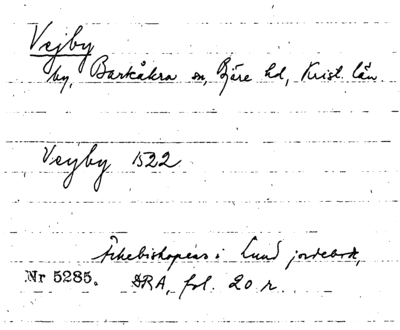 Vejby
by, Barkåkra sn, Bjäre hd, Krist. län
Veyby 1522
Ärkebiskopens i Lund jordebok,
Nr 5285. DRA, fol. 20 r.